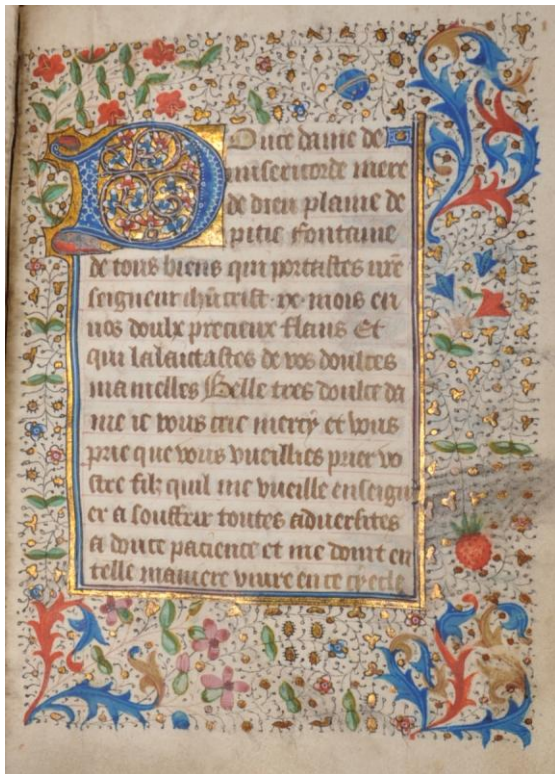 Douce dame de
misericorde mere
de dieu plaine de
pitie fontaine
de tous biens qui portastes nr̄e
seigneur ih̄ucrist · ix · mois en
vos doulx precieux flans Et
qui lalaictastes de vos doulces
mamelles Belle tres doulce da
me ie vous crie mercy et vous
prie que vous vueillies prier vo
stre filz quil me vueille enseign
er a souffrir toutes aduersites
a douce pacience et me doint en
telle maniere viure en ce siecle